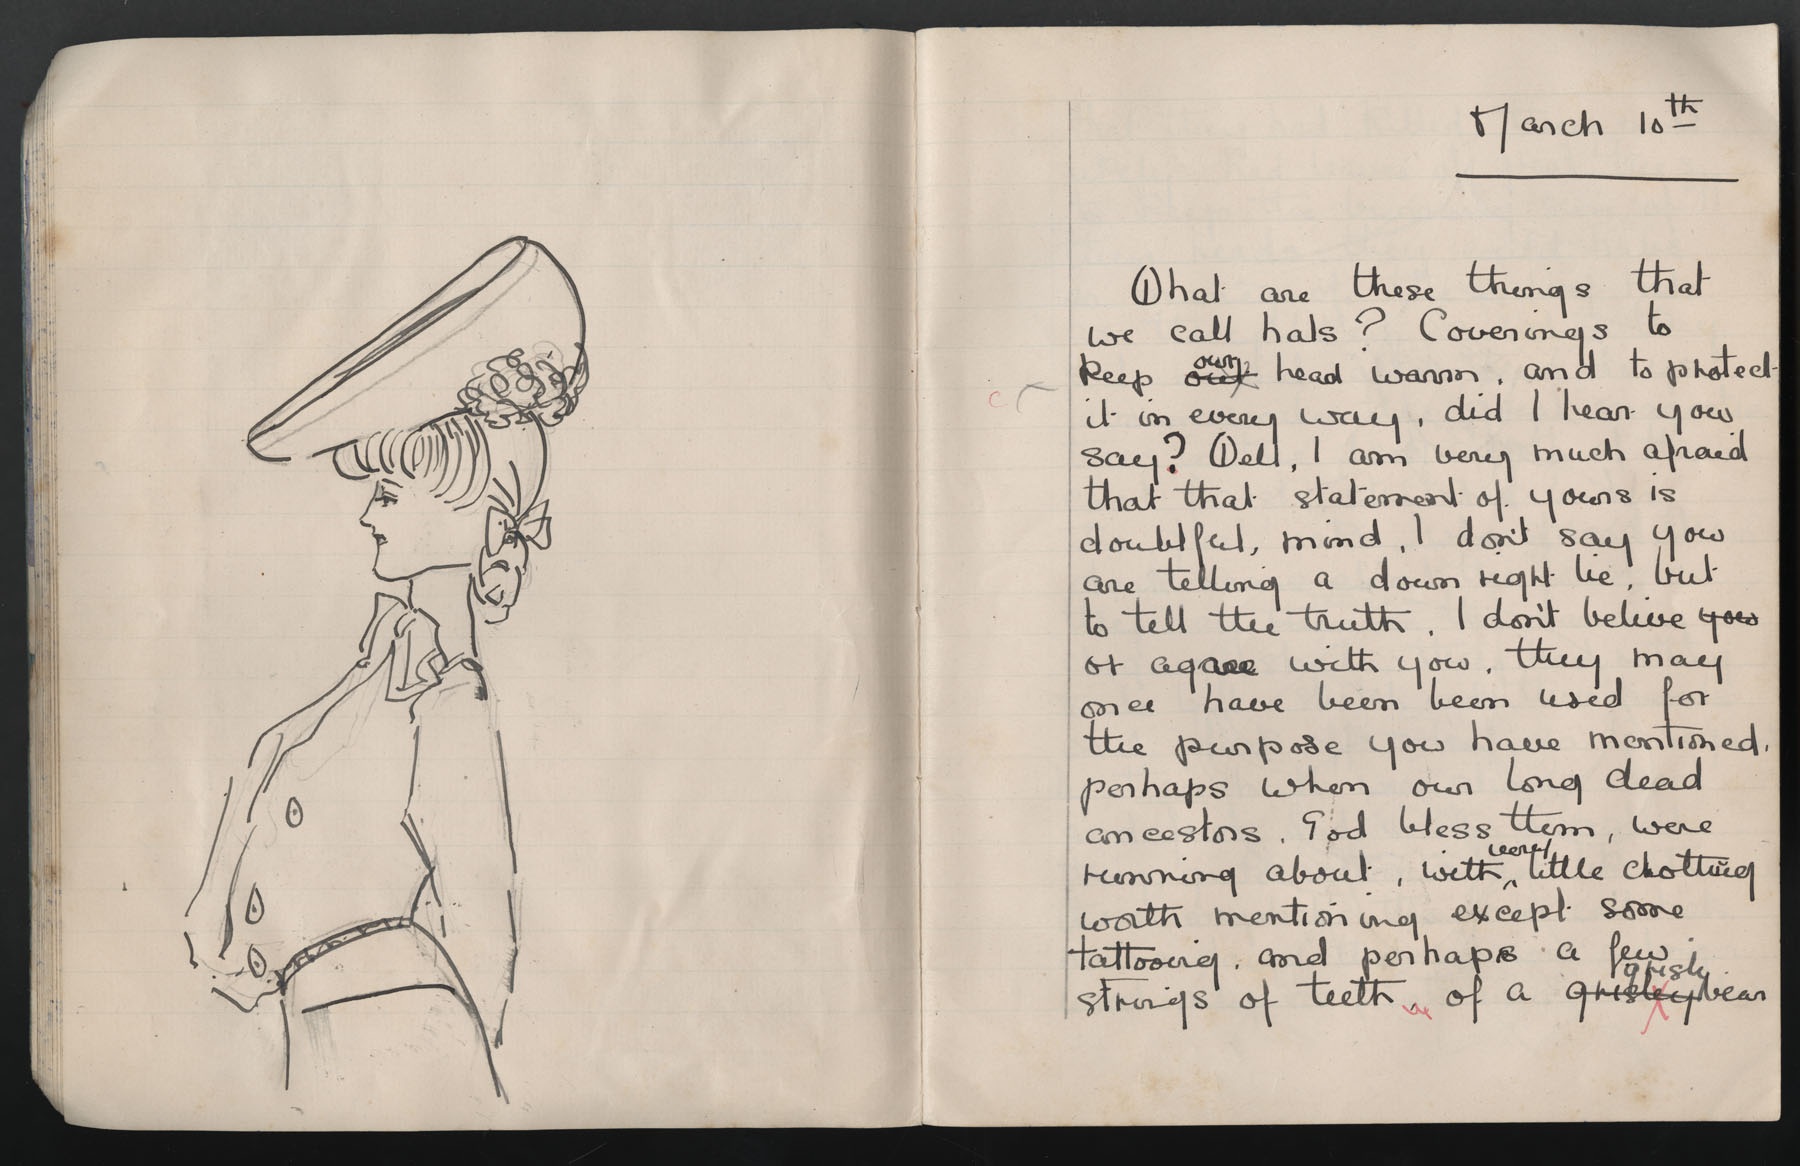 March 10th
What are these things that
we call hats? Coverings to
keep out our head warm, and to protect
it in every way, did I hear you
say? Well, I am very much afraid
that that statement of yours is
doubtful, mind, I don't say you
are telling a down right lie, but
to tell the truth, I don't belive you
or agree with you, they may
once have been been used for
the purpose you have mentioned,
perhaps when our long dead
ancestors, God bless them, were
running about, with very little clothing
worth mentioning except some
tattooing, and perhaps a few
strings of teeth, of a grisley grisly bear